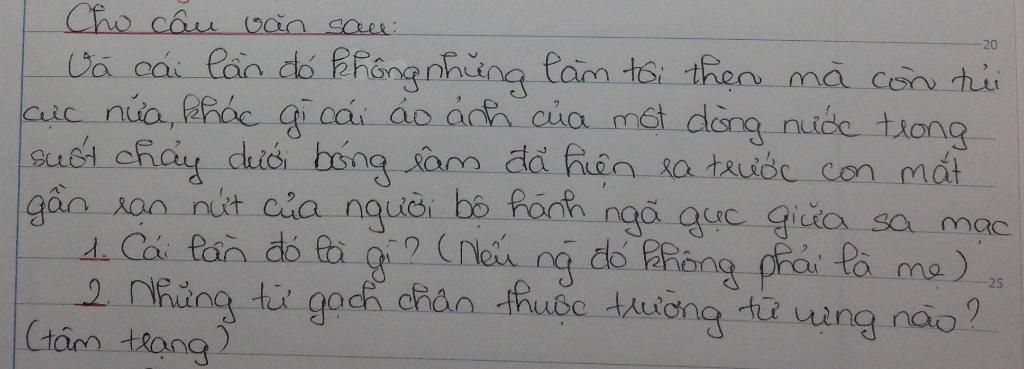 Cho câu văn sau:
20
Và cái lần đó không những làm tôi thẹn mà còn tủi
cực nữa, khác gì cái ảo ảnh của một dòng nước trong
suốt chảy dưới bóng râm đã hiện ra trước con mắt
gần rạn nứt của người bộ hành ngã gục giữa sa mạc
1. Cái lần đó là gì? (Nếu ng đó không phải là mẹ)
25
2 Những từ gạch chân thuộc trường từ vựng nào?
(tâm trạng)